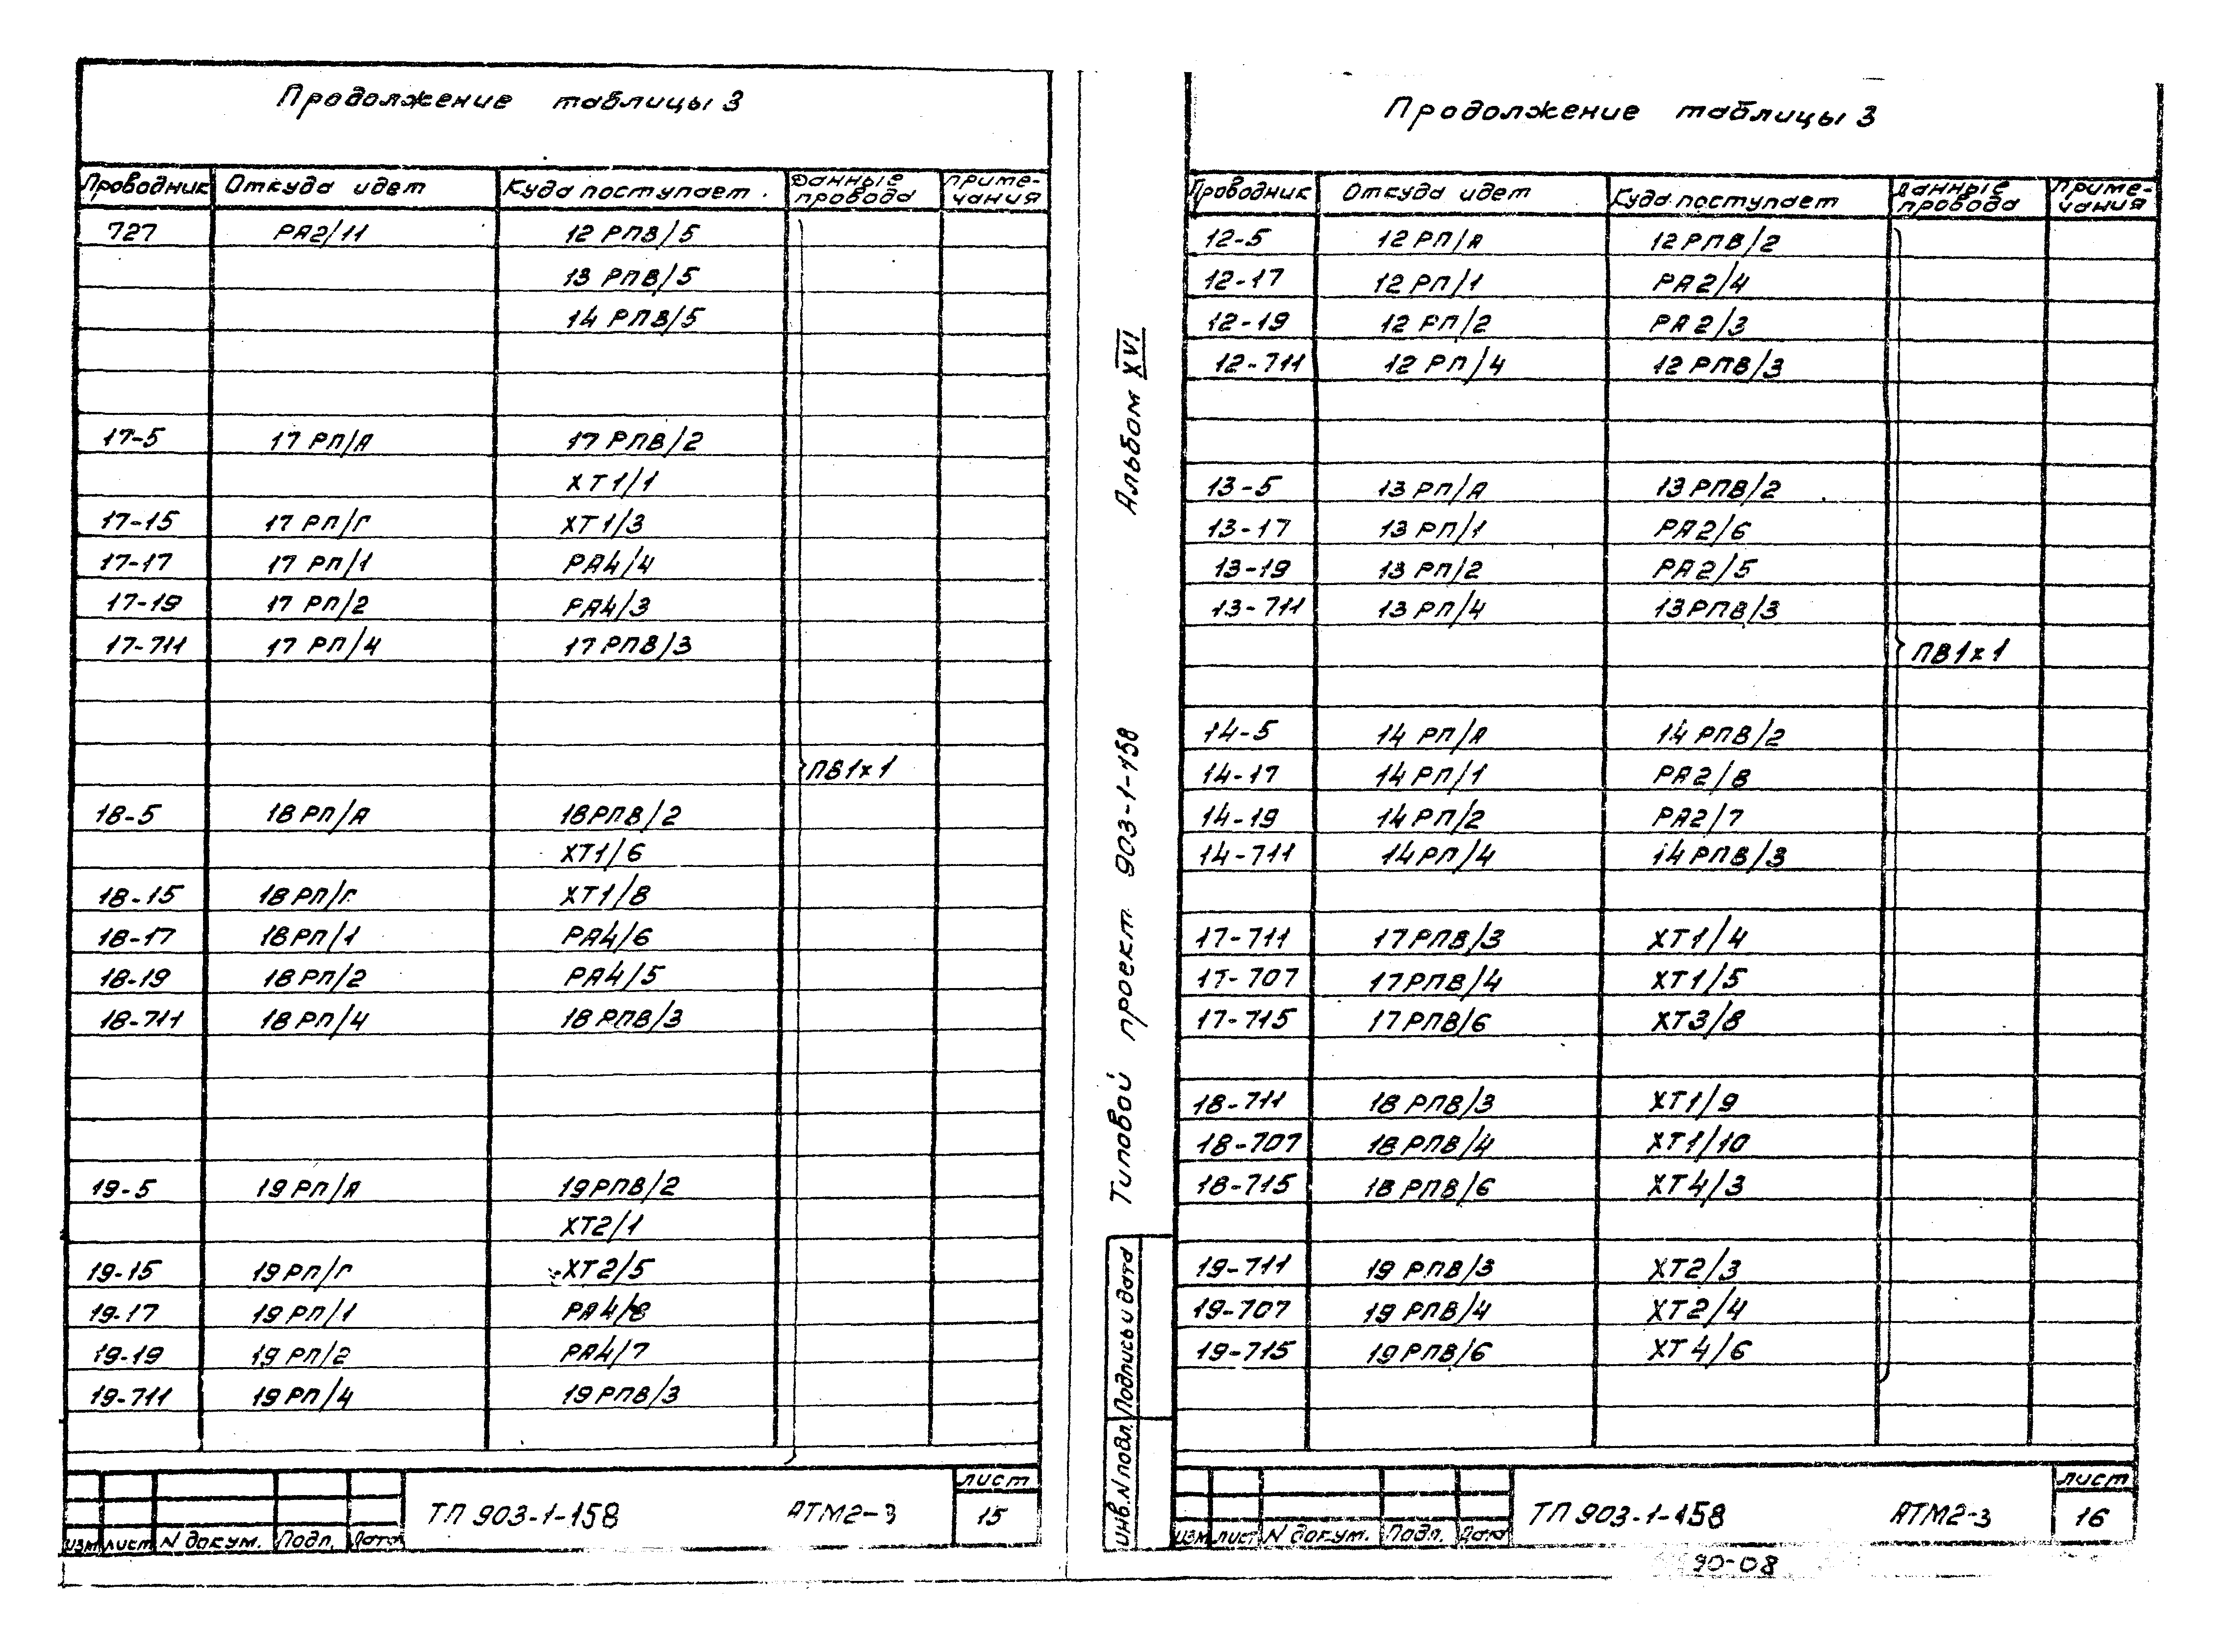 Продолжение таблицы 3
Проводник Откуда идет Куда поступает Данные провода Приме-чания
727 РА2/11 12 РПВ/5
13 РПВ/5
14 РПВ/5
17-5 17 РП/А 17 РПВ/2
ХТ1/1
17-15 17 РП/Г ХТ1/3
17-17 17 РП/1 РА4/4
17-19 17 РП/2 РА4/3
17-711 17 РП/4 17 РПВ/3
ПВ1х1
18-5 18 РП/А 18РПВ/2
ХТ1/6
18-15 18 РП/Г ХТ1/8
18-17 18 РП/1 РА4/6
18-19 18 РП/2 РА4/5
18-711 18 РП/4 18 РПВ/3
19-5 19 РП/А 19РПВ/2
ХТ2/1
19-15 19 РП/Г ХТ2/5
19-17 19 РП/1 РА4/8
19-19 19 РП/2 РА4/7
19-711 19 РП/4 19 РПВ/3
изм лист N докум. Подп. Дата
ТП 903-1-158 АТМ2-3
лист
15
Альбом XVI
Типовой проект 903-1-158
Инв.N подл. Подпись и дата
Продолжение таблицы 3
Проводник Откуда идет Куда поступает Данные провода Приме-чания
12-5 12 РП/А 12 РПВ/2
12-17 12 РП/1 РА2/4
12-19 12 РП/2 РА2/3
12-711 12 РП/4 12 РПВ/3
13-5 13 РП/А 13 РПВ/2
13-17 13 РП/1 РА2/6
13-19 13 РП/2 РА2/5
13-711 13 РП/4 13РПВ/3
ПВ1х1
14-5 14 РП/А 14 РПВ/2
14-17 14 РП/1 РА2/8
14-19 14 РП/2 РА2/7
14-711 14 РП/4 14 РПВ/3
17-711 17 РПВ/3 ХТ1/4
17-707 17РПВ/4 ХТ1/5
17-715 17РПВ/6 ХТ3/8
18-711 18 РПВ/3 ХТ1/9
18-707 18 РПВ/4 ХТ1/10
18-715 18 РПВ/6 ХТ4/3
19-711 19 РПВ/3 ХТ2/3
19-707 19 РПВ/4 ХТ2/4
19-715 19 РПВ/6 ХТ4/6
изм лист N докум. Подп. Дата
ТП 903-1-158 АТМ2-3
лист
16
90-08